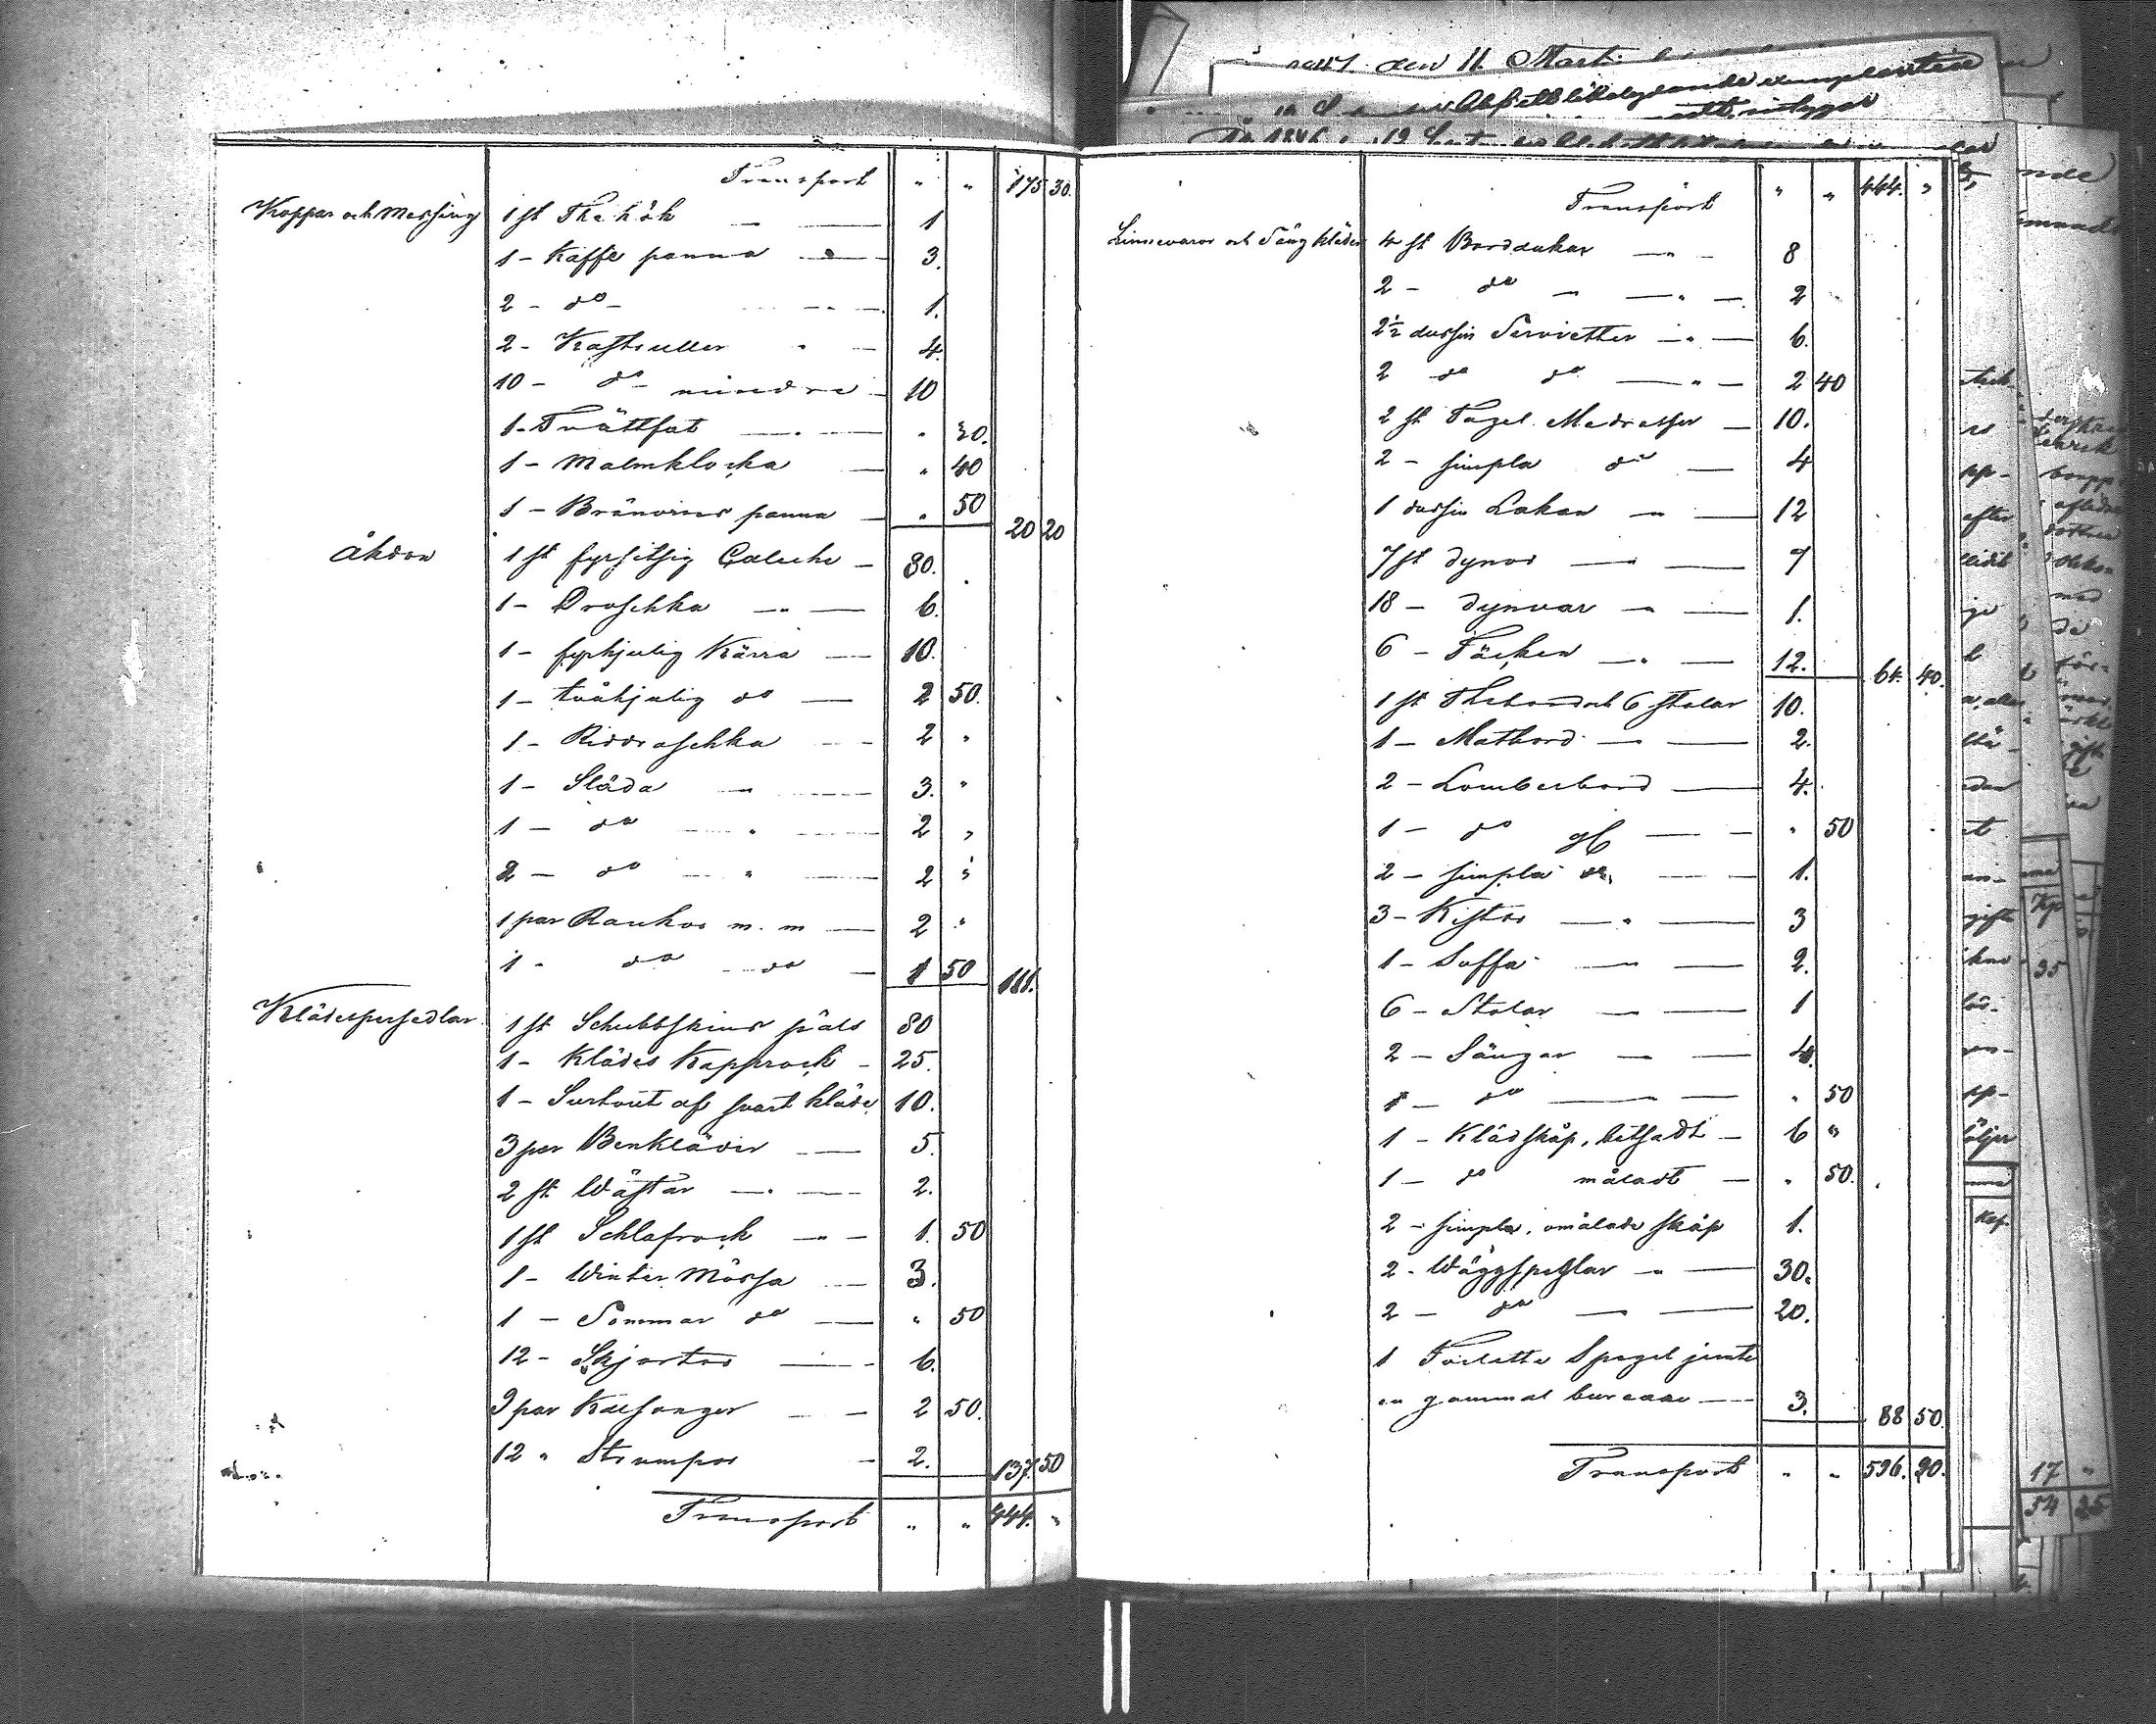 Transport " " 175 30.
Koppar och Messing 1 st Thekök 1
1 - Kaffe panna 3.
2 - do 1.
2 - Kastruller 4.
10 - do mindre 10
1 - Tvättfat " 30.
1 - Malmklocka " 40
1 - Bränvins panna " 50 20 20
Åkdon 1 st fyrsitsig Caleche 80.
1 - Droschka 6.
1 - fyrhjulig Kärra 10.
1 - tvåhjulig do 2 50.
1 - Riddroschka 2 "
1 - Släda 3. "
1 - do 2 "
2 - do 2 "
1 par Rankor m. m 2 "
1 - do do 1 50 111.
Klädespersedlar 1 st Schubbskins päls 80
1 - Klädes Kapprock 25.
1 - Surtout af svart kläde 10.
3 par Benkläder 5.
2 st Wästar 2.
1 st Schlafrock 1. 50
1 - Winter Mössa 3.
1 - Sommar do " 50
12 - Skjortor 6.
9 par Kalsonger 2 50.
12 " Strumpor 2. 137. 50
Transport " " 444. "
den 11. Mart
Transport " " 444. "
Linnevaror och Sängkläder 4 st Borddukar 8
2 - do 2
2½ dussin Servietter 6.
2 do do 2 40
2 st Tagel Madrasser 10.
2 - simpla do 4
1 dussin Lakan 12
7 st dynor 7
18 - dynvar 1.
6 - Täcken 12. 64. 40.
1 st Thebord och 6 stolar 10.
1 - Matbord 2.
2 - Lomberbord 4.
1 - do gl " 50
2 - simpla do 1.
3 - Kistor 3
1 - Soffa 2.
6 - Stolar 1
2 - Sängar 4.
1 - do " 50
1 - Klädskåp, betsadt 6 "
1 - do måladt " 50.
2 - simpla, omålade skåp 1.
2 - Wäggspeglar 30.
2 - do 20.
1 Toilette Spegel jemte
en gammal bureau 3. 88 50.
Transport " " 596. 90.